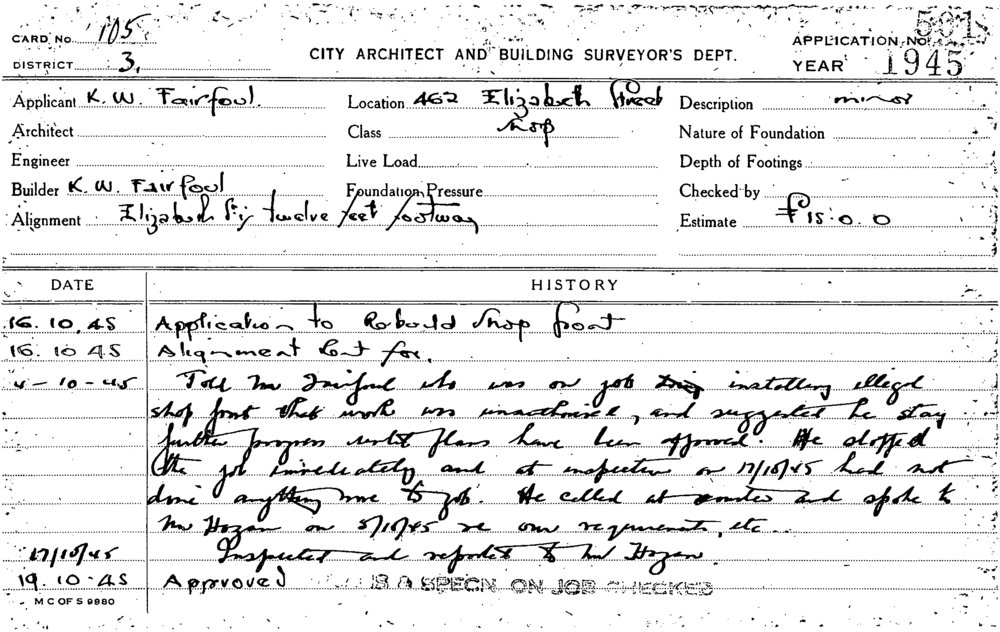 CARD No. 105.
DISTRICT 3.
CITY ARCHITECT AND BUILDING SURVEYOR'S DEPT.
APPLICATION No. 501
YEAR 1945
Applicant K. W. Fairfoul. Location 462 Elizabeth Street Description minor
Architect Class Shop Nature of Foundation
Engineer Live Load Depth of Footings
Builder K. W. Fairfoul Foundation Pressure Checked by
Alignment Elizabeth St; twelve feet footway Estimate £15.0.0
DATE HISTORY
16.10.45 Application to Rebuild Shop front
16.10.45 Alignment for.
4-10-45 Told Mr Fairfoul who was on job installing illegal
shop front that work was unauthorised, and suggested he stay
further progress until plans have been approved. He stopped
the job immediately and at inspection on 17/10/45 had not
done anything more to job. He called at and spoke to
Mr Hogan on 5/10/45 re our requirements, etc..
17/10/45 Inspected and reported to Mr Hogan
19.10.45 Approved B.A SPECN. ON JOB CHECKED
M C OF S 9980